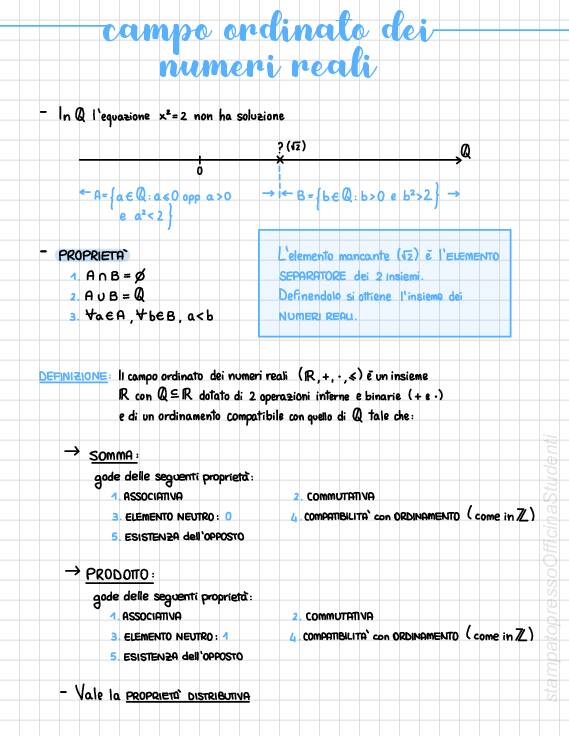 campo ordinato dei
numeri reali
- In ℚ l'equazione x²=2 non ha soluzione
? (√2)
ℚ
0
← A={a∈ℚ: a⩽0 opp a>0 → ← B={b∈ℚ: b>0 e b²>2} →
e a²<2}
- PROPRIETA'
1. A∩B=∅
2. A∪B=ℚ
3. ∀a∈A, ∀b∈B, a<b
L'elemento mancante (√2) è l'ELEMENTO
SEPARATORE dei 2 insiemi.
Definendolo si ottiene l'insieme dei
NUMERI REALI.
DEFINIZIONE: Il campo ordinato dei numeri reali (ℝ,+,·,⩽) è un insieme
ℝ con ℚ⊆ℝ dotato di 2 operazioni interne e binarie (+ e ·)
e di un ordinamento compatibile con quello di ℚ tale che:
→ SOMMA:
gode delle seguenti proprietà:
1. ASSOCIATIVA 2. COMMUTATIVA
3. ELEMENTO NEUTRO: 0 4. COMPATIBILITA' con ORDINAMENTO (come in ℤ)
5. ESISTENZA dell'OPPOSTO
→ PRODOTTO:
gode delle seguenti proprietà:
1. ASSOCIATIVA 2. COMMUTATIVA
3. ELEMENTO NEUTRO: 1 4. COMPATIBILITA' con ORDINAMENTO (come in ℤ)
5. ESISTENZA dell'OPPOSTO
- Vale la PROPRIETA' DISTRIBUTIVA
stampatopressoOfficinaStudenti